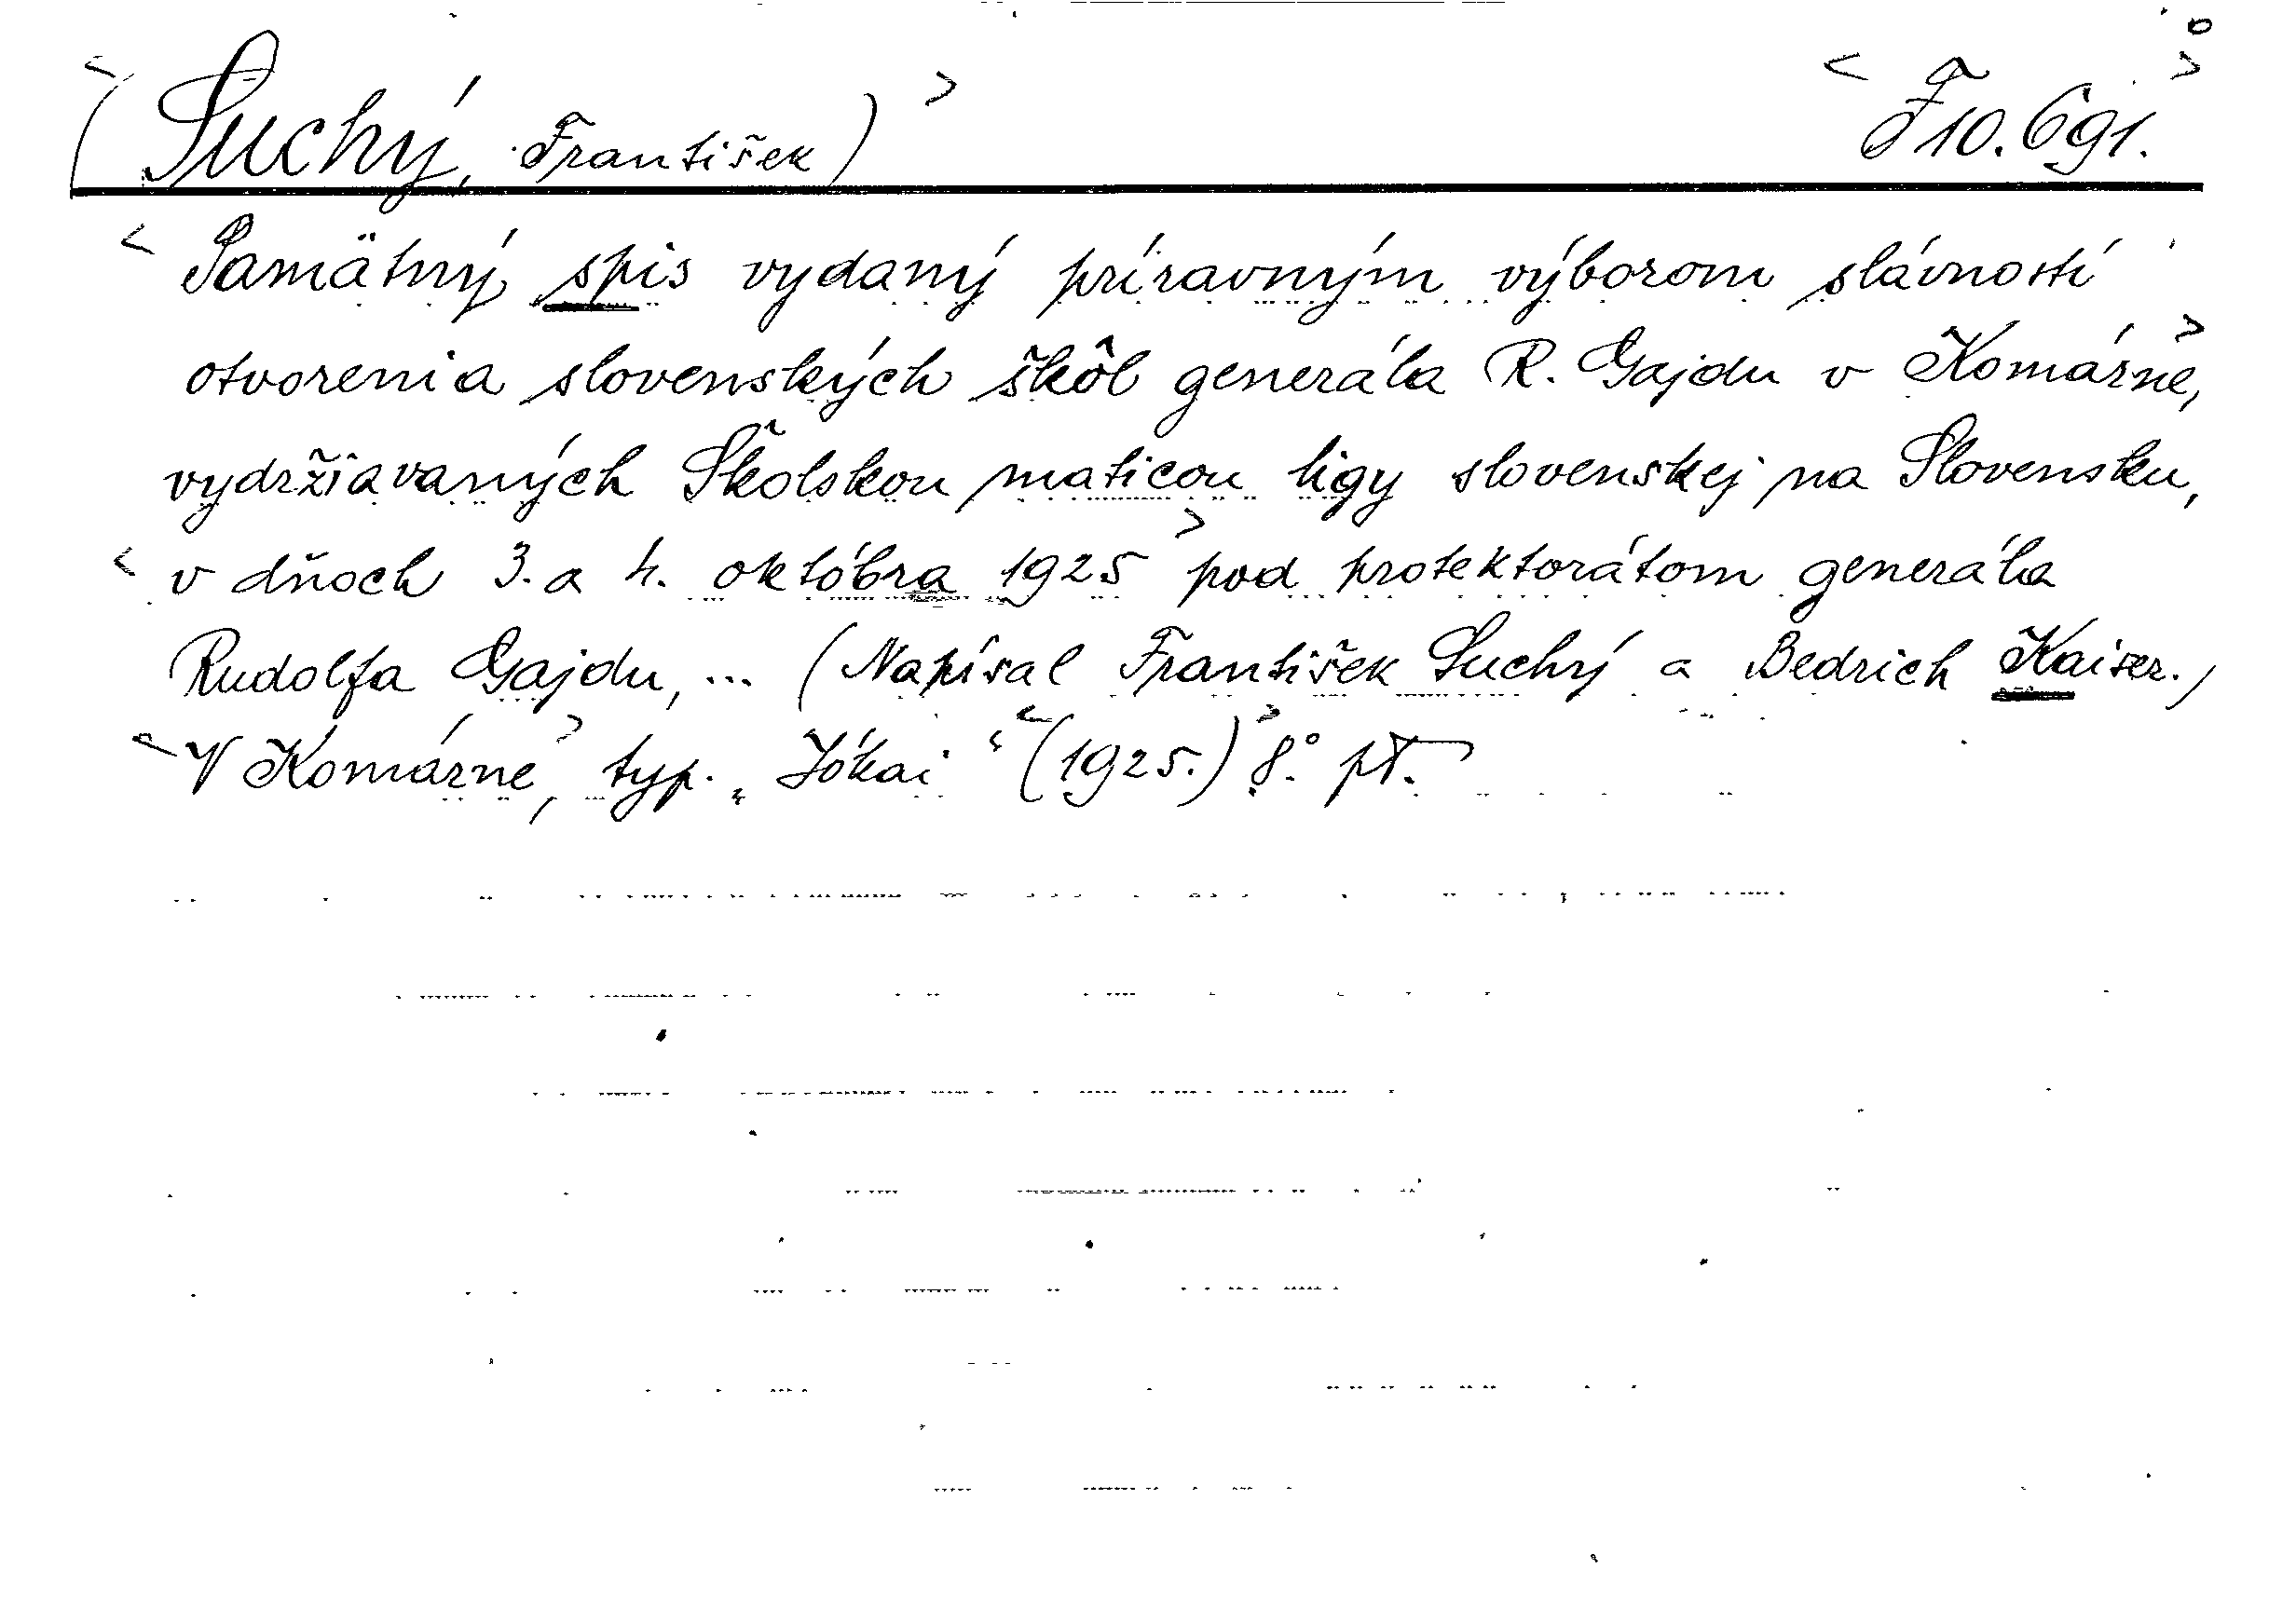 <(Suchý, František)> <F 10.691.>
<Pamätný spis vydaný prípravným výborom slávností
otvorenia slovenských škôl generála R. Gajdu v Komárne,>
vydržiavaných Školskou maticou ligy slovenskej na Slovensku,
<v dňoch 3. a 4. októbra 1925> pod protektorátom generála
Rudolfa Gajdu, ... (Napísal František Suchý a Bedrich Kaiser.)
<V Komárne,> typ. „Jókai“ <(1925.)> 8.°